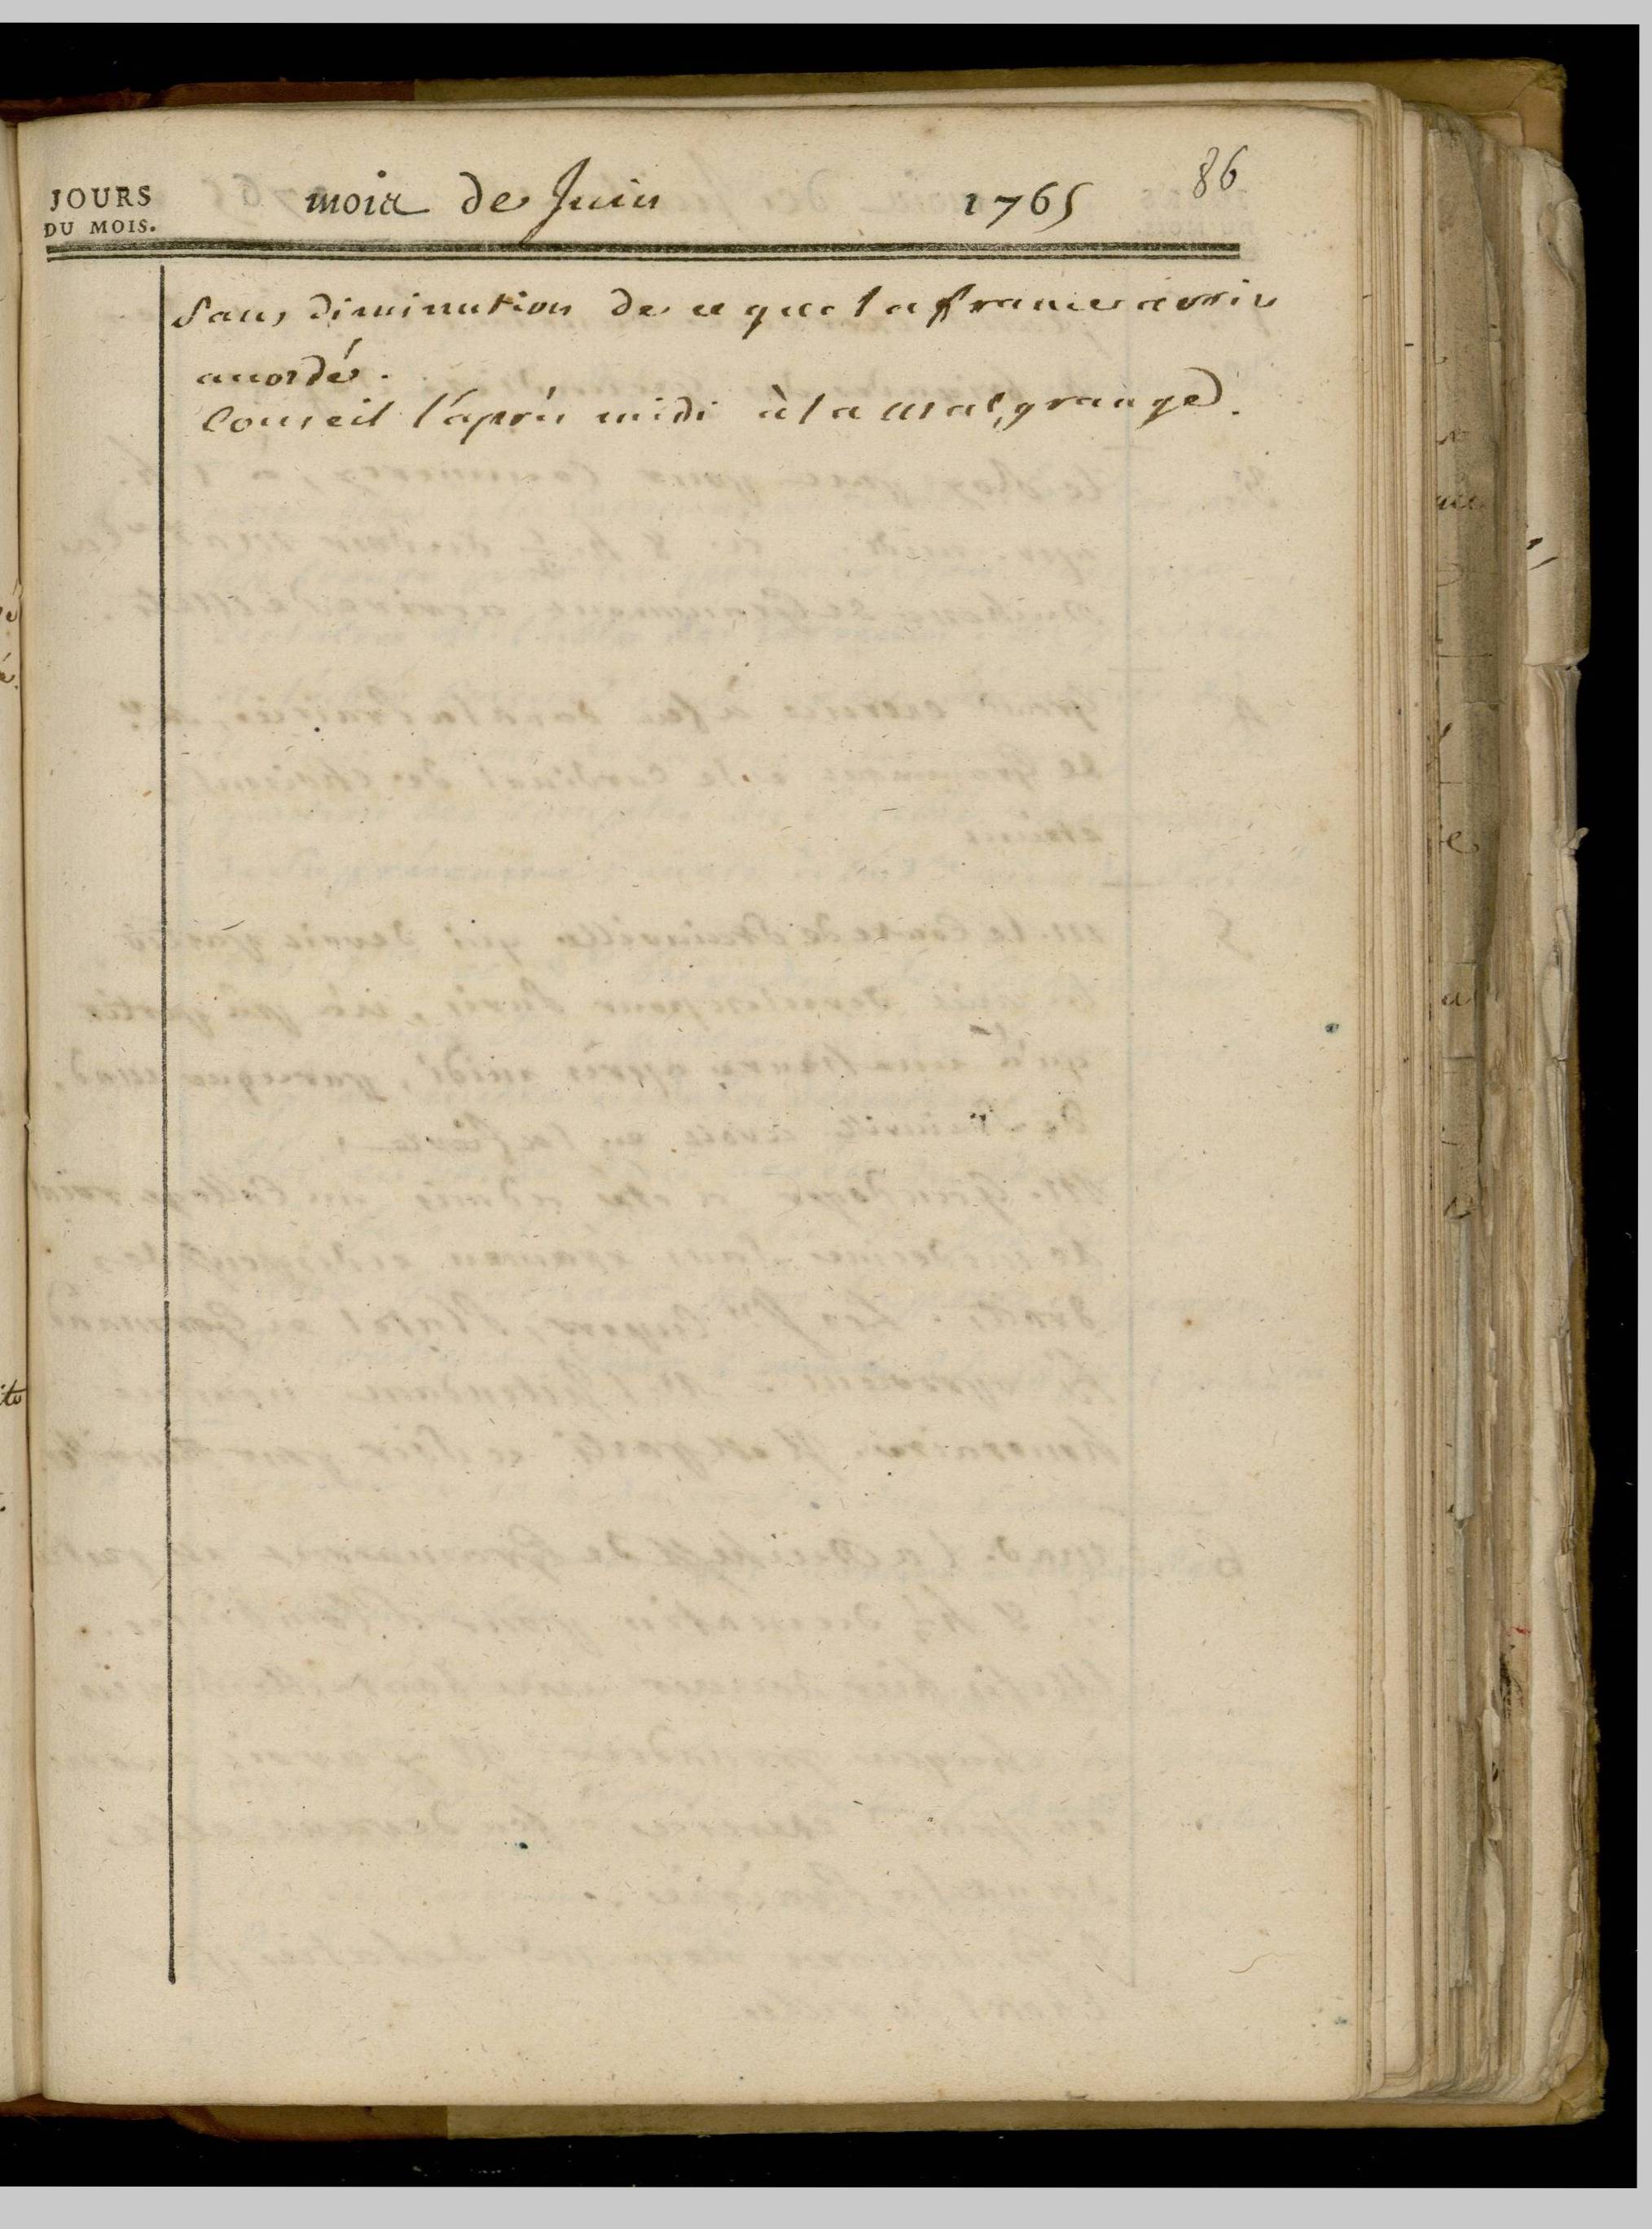 86
JOURS
DU MOIS.
mois de Juin 1765
sans diminution de ce que la france avoit
accordé.
Conseil l'après midi à la malgrange.